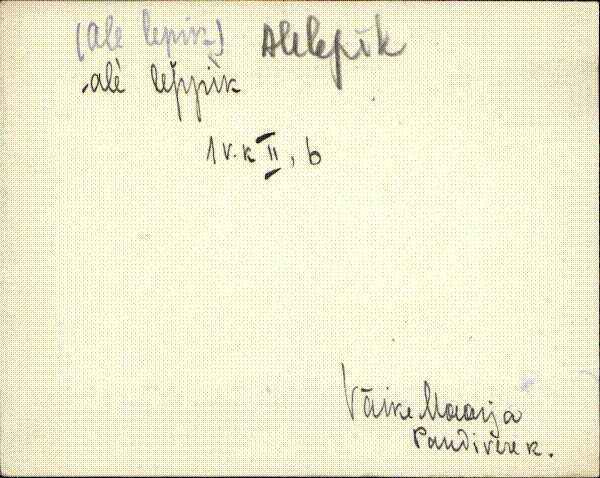 (ale lepik) Alelepik
alè leppìk
1 v. k II, b
Väike Maarja
Pandivere k.